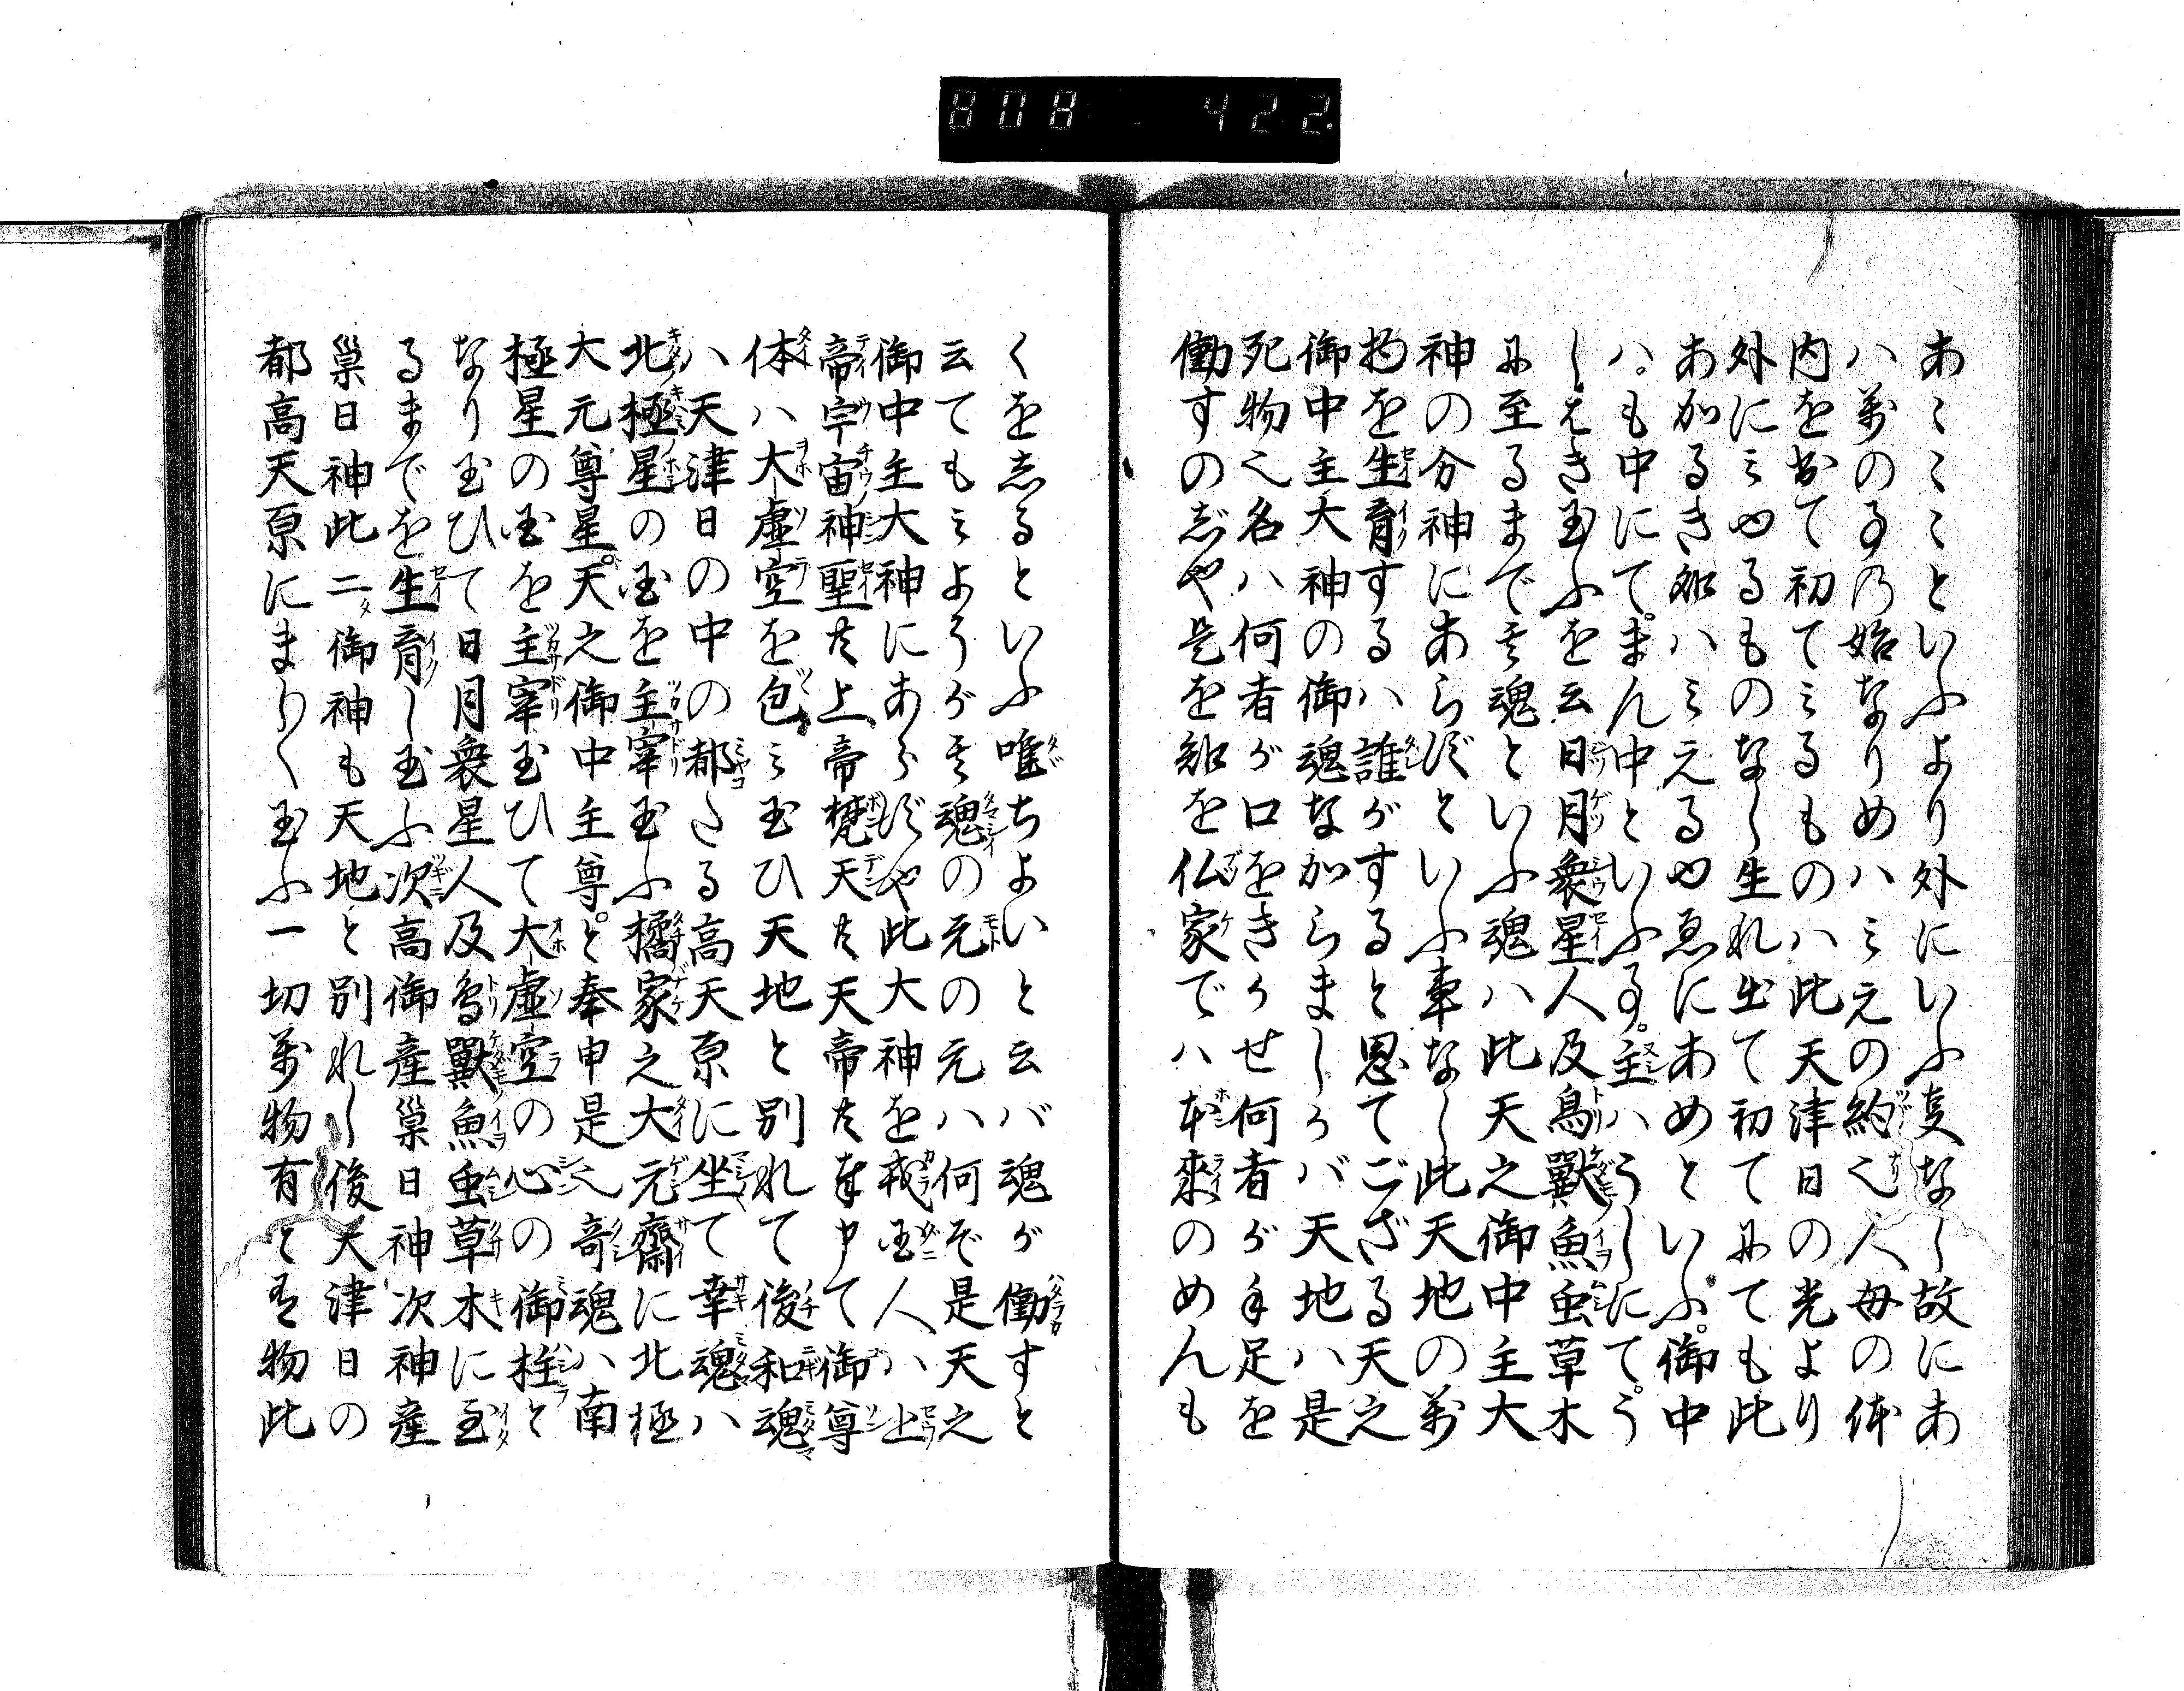 808 422.
あミミこといふより外にいふ支なし故にあ
ハ萬のるの始なりめハミえの約也人毋の体
内を出て初てミるものハ此天津日の光より
外にミゆるものなし生れ出て初てみても此
あかるき知ハミえるゆゑにあめといふ。御中
ハ。も中にて。まん中といふる。主ハうしにて。う
しはき玉ふを云日月衆星人及鳥獸魚虫草木
に至るまで其魂といふ魂ハ此天之御中主大
神の分神にあらずといふ事なし此天地の萬
物を生育するハ誰がすると思てござる天之
御中主大神の御魂なからましかバ天地ハ是
死物也名ハ何者が口をきかせ何者が手足を
働すのぢや是を知を仏家でハ本来のめんも
くを志るといふ唯ちよいと云バ魂が働すと
云てもミようが其魂の元の元ハ何ぞ是天之
御中主大神にあらずや此大神を戎国人ハ上
帝宇宙神聖共上帝梵天共天帝共奉申て御尊
体ハ大虚空を包ミ玉ひ天地と別れて後和魂
ハ天津日の中の都たる高天原に坐て幸魂ハ
北極星の国を主宰玉ふ橘家之大元齋に北極
大元尊星。天之御中主尊。と奉申是也奇魂ハ南
極星の国を主宰玉ひて大虚空の心の御柱と
なり玉ひて日月衆星人及鳥獸魚虫草木に至
るまでを生育し玉ふ次高御産巣日神次神産
巣日神此二御神も天地と別れし後天津日の
都高天原にまり〱玉ふ一切萬物有と有物此